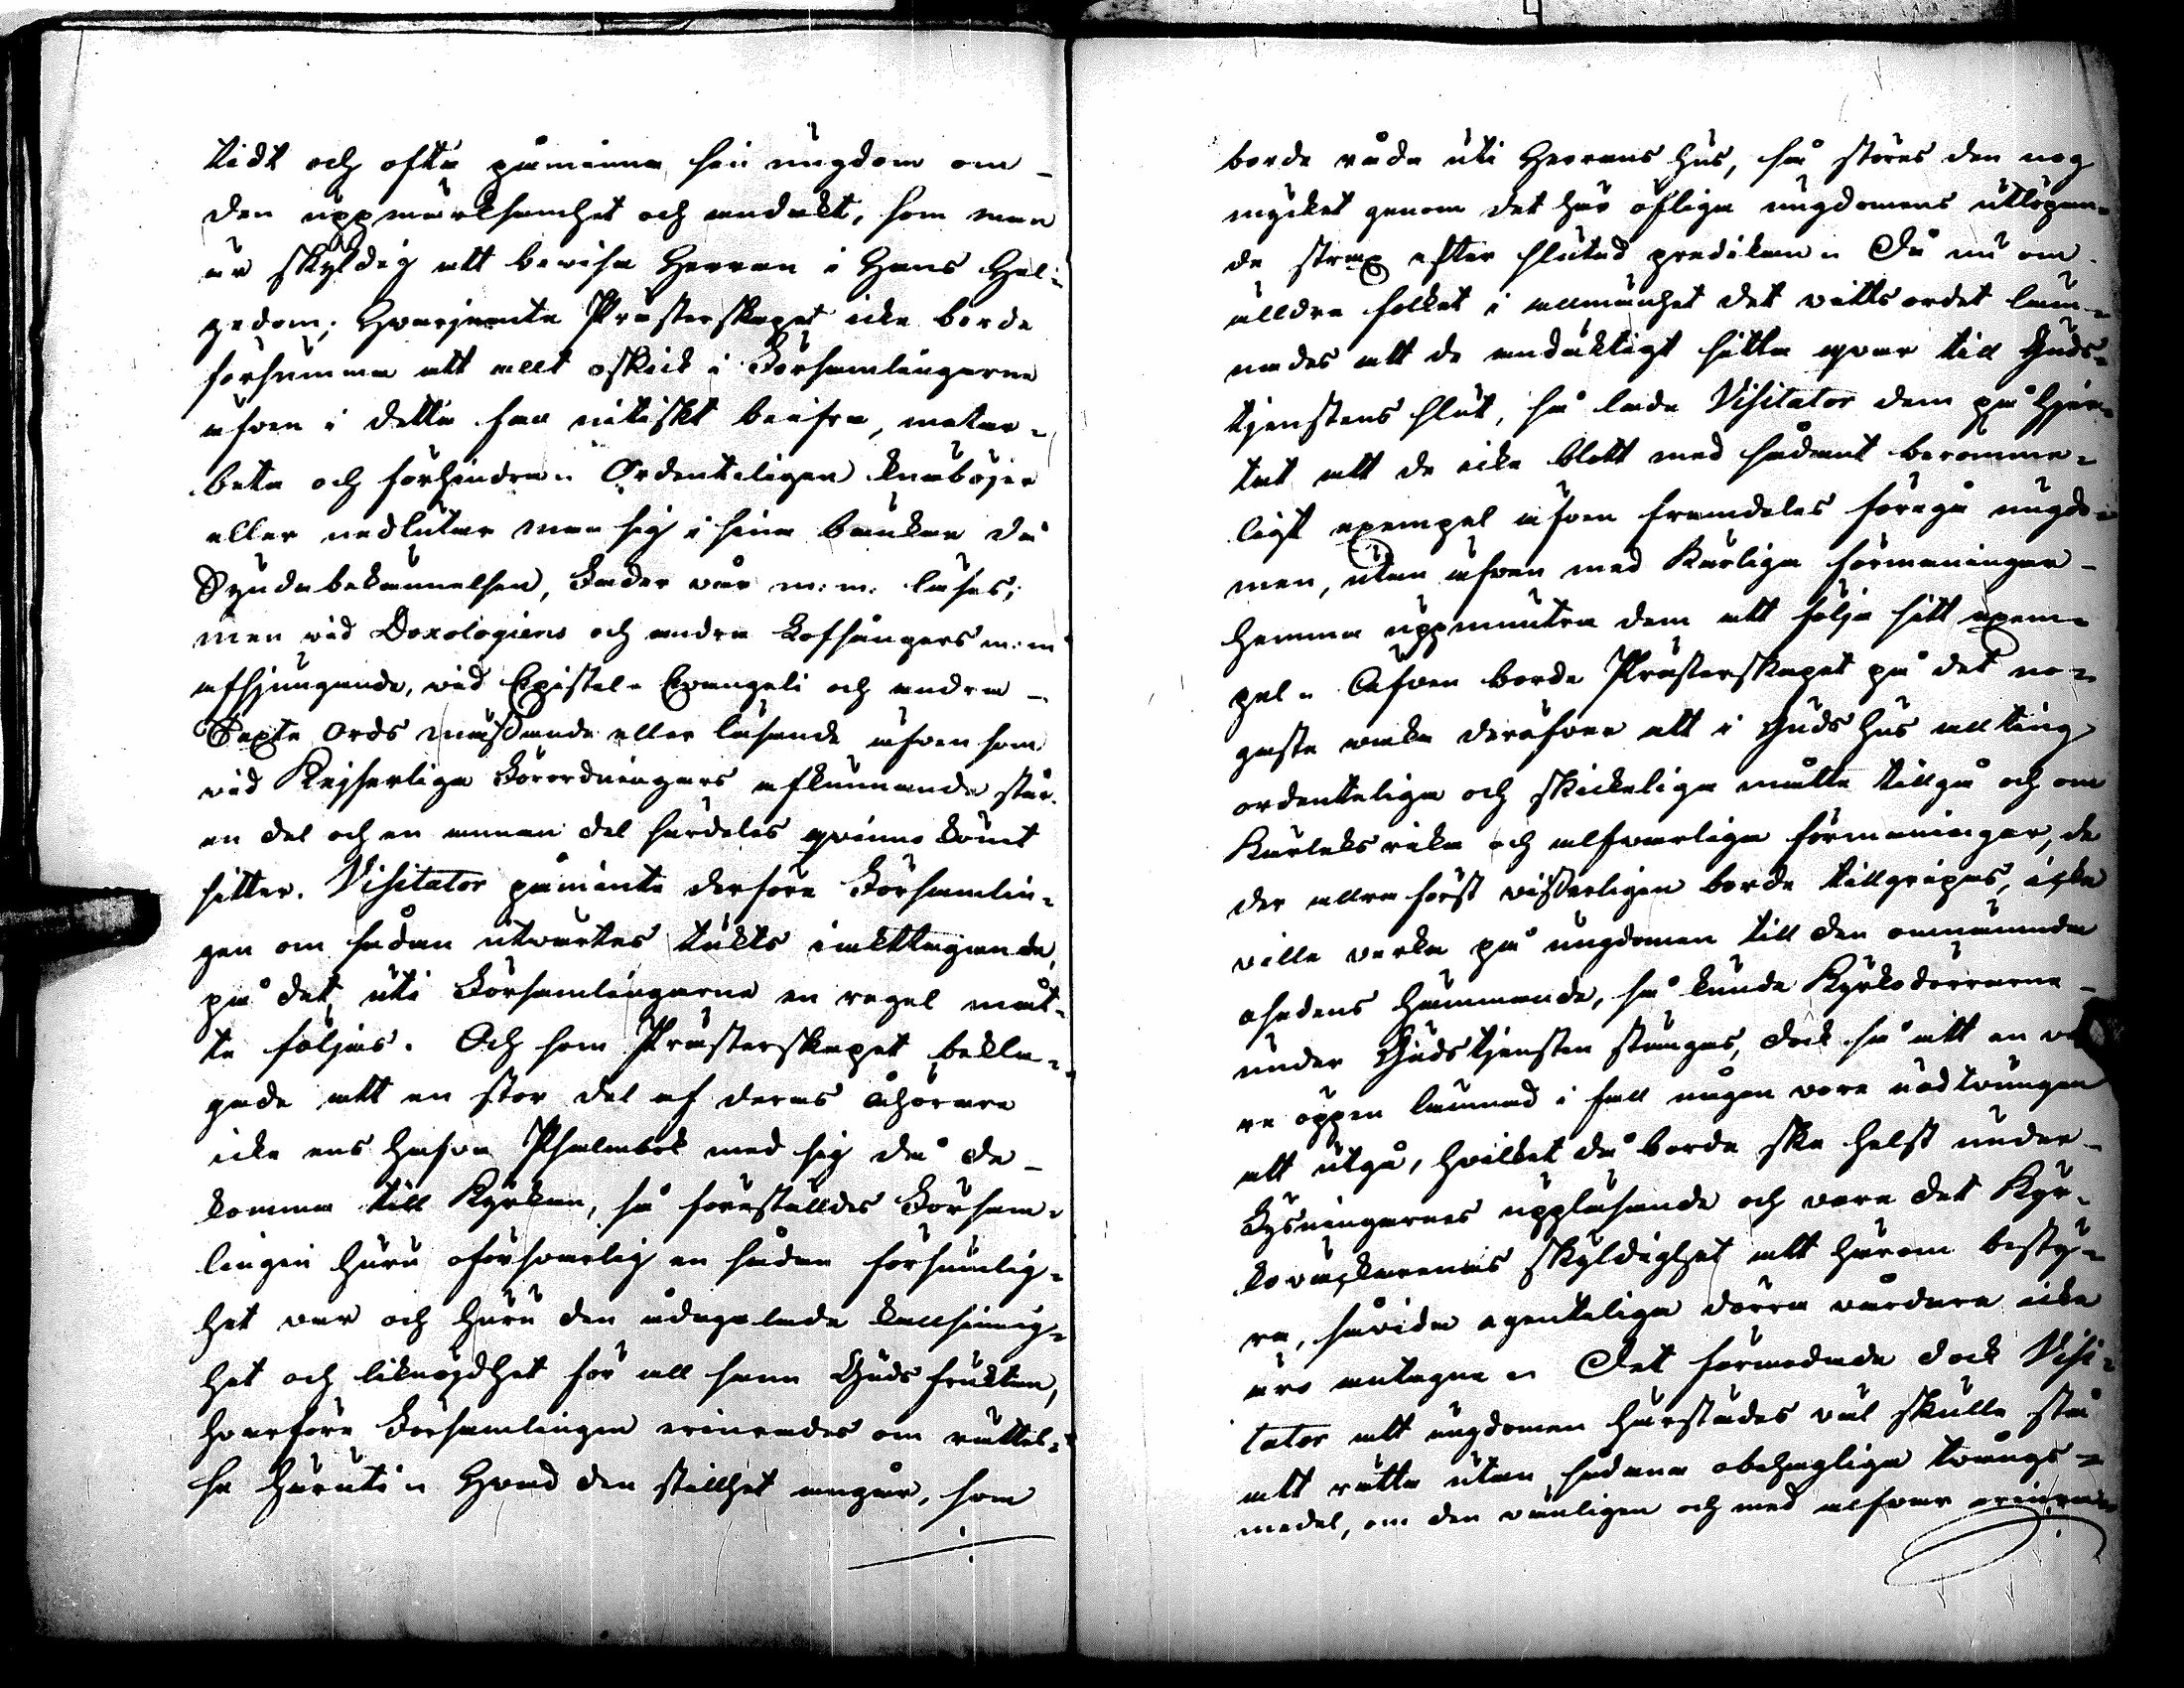 tidt och ofta påminna sin ungdom om
den uppmärksamhet och andakt, som man
är skyldig att bevisa Herran i Hans Hel-
gedom; Hvarjemte Prästerskapet icke borde
försumma att allt oskick i Församlingarne
äfven i detta fall nitiskt beifra, motar-
beta och förhindra. Ordenteligen knäböjer
eller nedlutar man sig i sina bänkar då
Syndabekännelsen, Fader vår m: m: läses;
men vid Doxologiens och andra Lofsångers m: m
afsjungande, vid Epistel- Evangeli och andra
Texte Ords mässande eller läsande äfven som
vid Kejserliga Förordningars afkunnande står
en del och en annan del särdeles qvinnokönet
sitter. Visitator påminte derföre Församlin-
gen om sådan utvärtes tukts iakttagande,
på det, uti Församlingarne en regel måt-
te följas. Och som Prästerskapet bekla-
gade att en stor del af deras åhörare
icke ens hafva Psalmbok med sig då de
komma till Kyrkan, så föreställdes Försam-
lingen huru oförsvarlig en sådan försumlig-
het var och huru den ådagalade kallsinnig-
het och liknöjdhet för all sann Gudsfruktan,
hvarföre Församlingen erinrades om rättel-
se häruti. Hvad den stillhet angår, som
borde råda uti Herrans hus, så störes den nog
mycket genom det här öfliga ungdomens utlöpan-
de strax efter slutad predikan. Då nu om
älldre folket i allmänhet det vittsordet läm-
nades att de andäktigt sitta qvar till Guds-
tjenstens slut, så lade Visitator dem på hjer-
tat att de icke blott med sådant berömme-
ligt exempel äfven framdeles föregå ungdo-
men, utan äfven med Kärliga förmaningar
hemma uppmuntra dem att följa sitt exem-
pel. Äfven borde Prästerskapet på det no-
gaste vaka deröfver att i Guds hus allting
ordenteliga och skickeliga måtte tillgå och om
Kärleksrika och alfvarliga förmaningar, de
der allra först visserligen borde tillgripas, icke
ville verka på ungdomen till den omnämnda
osedens hämmande, så kunde Kyrkodörrarne
under Gudstjensten stängas, dock så att en
re öppen lämnad i fall någon vore nödtvungen
att utgå, hvilket då borde ske helst under
Lysningarnes uppläsande och vare det Kyr-
kovägtarenas skyldighet att härom besty-
ra, såvida egenteliga dörravårdare icke
äro antagna. Det förmodade dock Visi-
tator att ungdomen härstädes väl skulle stå
att rätta utan sådana obehagliga tvångs-
medel, om den vänligen och med alfvar erinrades